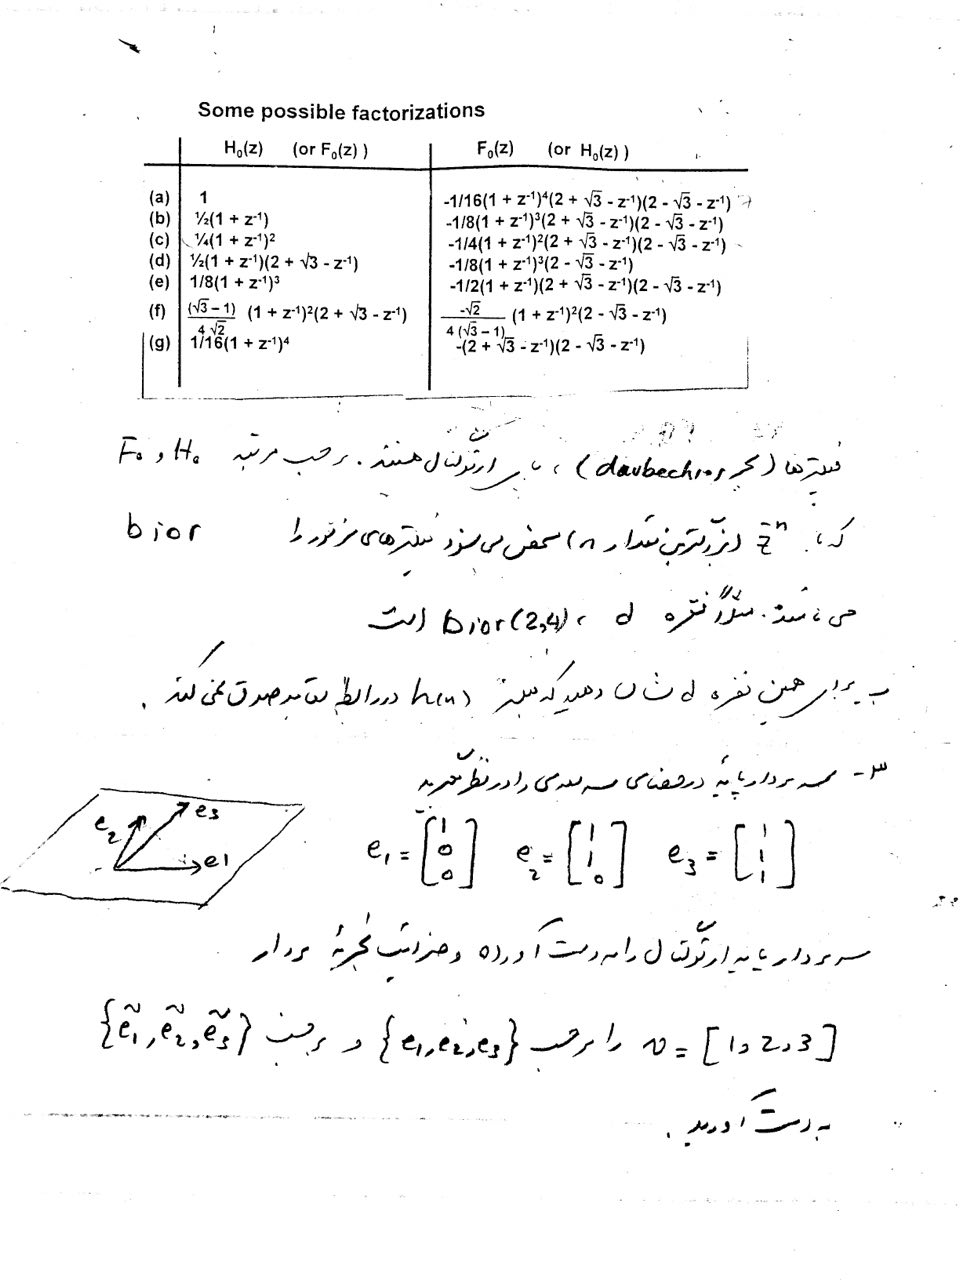 Some possible factorizations
H₀(z) (or F₀(z) ) F₀(z) (or H₀(z) )
(a) 1 -1/16(1 + z⁻¹)⁴(2 + √3 - z⁻¹)(2 - √3 - z⁻¹)
(b) ½(1 + z⁻¹) -1/8(1 + z⁻¹)³(2 + √3 - z⁻¹)(2 - √3 - z⁻¹)
(c) ¼(1 + z⁻¹)² -1/4(1 + z⁻¹)²(2 + √3 - z⁻¹)(2 - √3 - z⁻¹)
(d) ½(1 + z⁻¹)(2 + √3 - z⁻¹) -1/8(1 + z⁻¹)³(2 - √3 - z⁻¹)
(e) 1/8(1 + z⁻¹)³ -1/2(1 + z⁻¹)(2 + √3 - z⁻¹)(2 - √3 - z⁻¹)
(f) (√3 – 1)/4√2 (1 + z⁻¹)²(2 + √3 - z⁻¹) -√2/4(√3 – 1) (1 + z⁻¹)²(2 - √3 - z⁻¹)
(g) 1/16(1 + z⁻¹)⁴ -(2 + √3 - z⁻¹)(2 - √3 - z⁻¹)
فیلترها (بجز daubechies)، بای ارتوگنال هستند. برحسب مرتبه H₀ و F₀
که با z⁻ⁿ (بزرگترین مقدار n) مشخص می شود فیلترهای مزبور را bior
می نامند. مثلاً فقره d، bior(2,4) است
ب برای همین فقره d نشان دهید که فیلتر h(n) در رابطه تعامد صدق نمی کند.
۳- سه بردار پایه در فضای سه بعدی را در نظر بگیرید
e₂ e₃ e1
e₁ = [1 0 0] e₂ = [1 1 0] e₃ = [1 1 1]
سه بردار پایه ارتوگنال را به دست آورده و ضرایب تجزیه بردار
v = [1, 2, 3] را برحسب {e₁, e₂, e₃} و برحسب {ẽ₁, ẽ₂, ẽ₃}
به دست آورید.